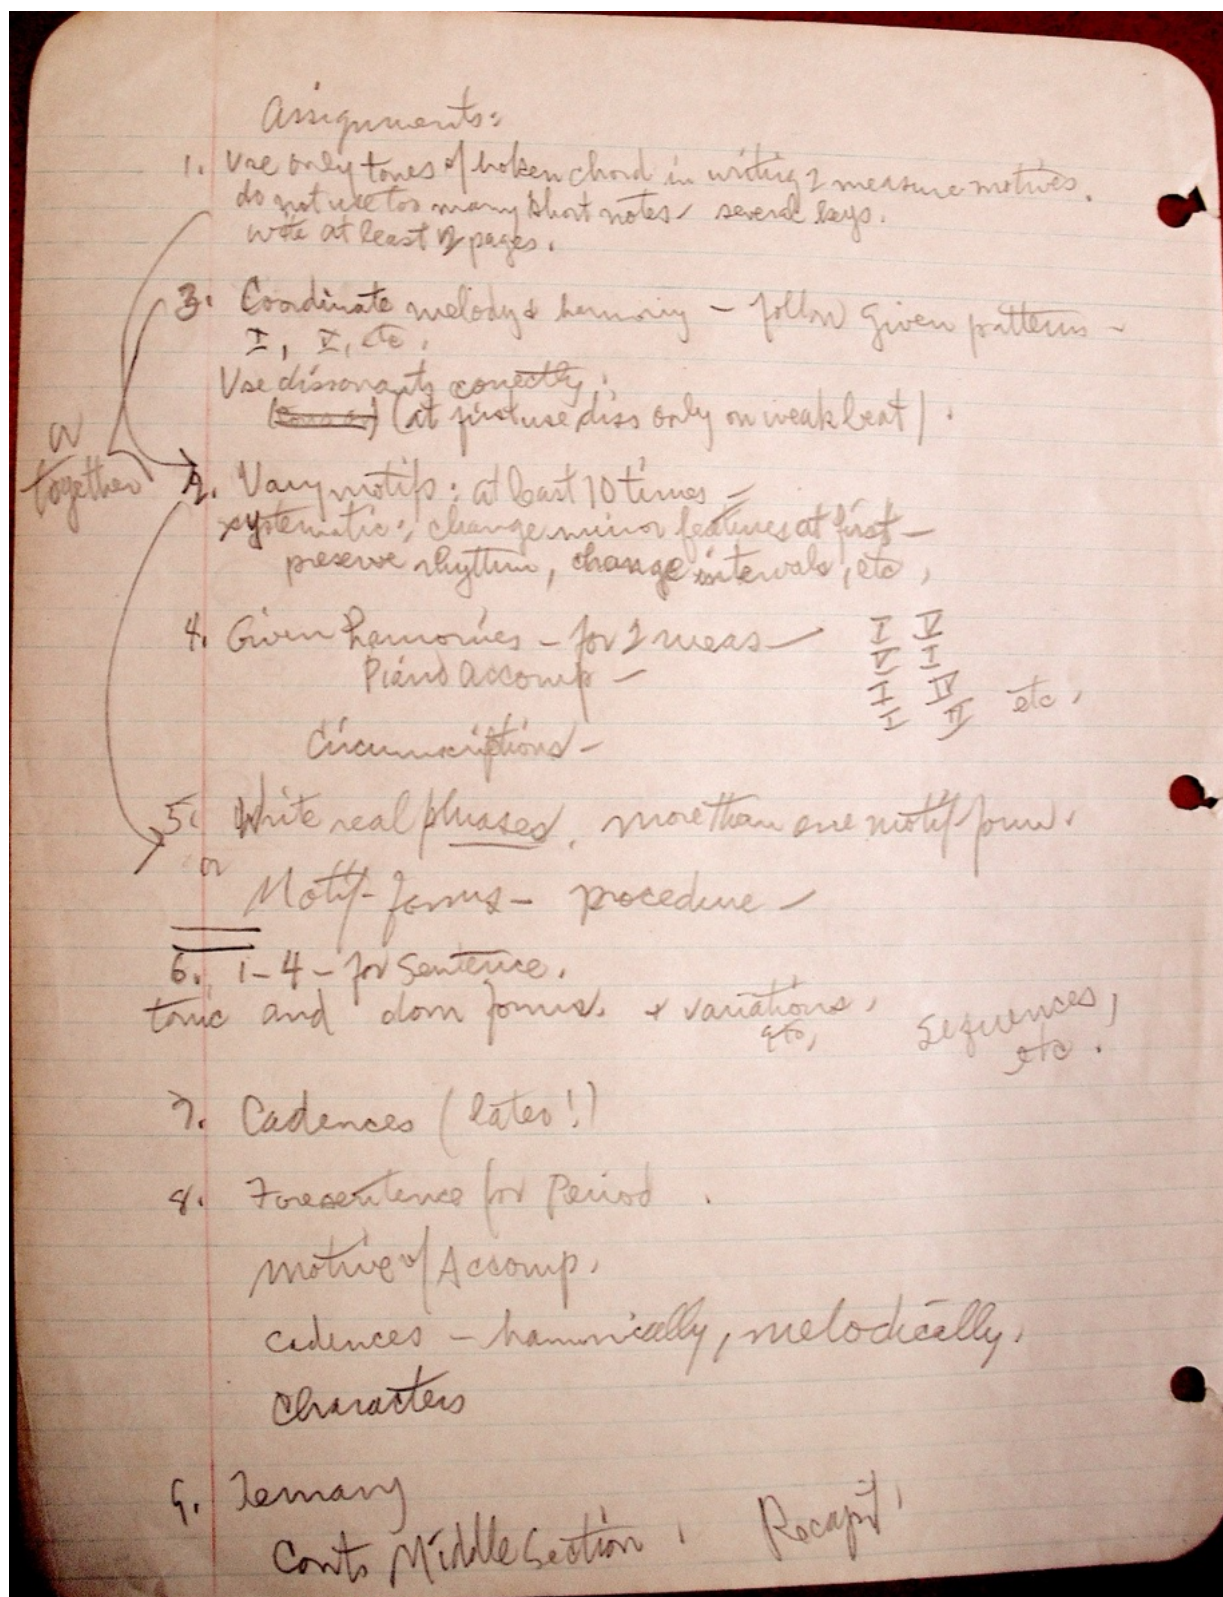 Assignments:
1. Use only tones of broken chord in writing 2 measure motives.
do not use too many short notes several keys.
write at least 2 pages.
3. Coordinate melody & harmony – follow given patterns –
I, V, etc.
Use dissonants correctly.
(at first use diss only on weak beat).
or
together
2. Vary motifs: at least 10 times –
systematic; change minor features at first –
preserve rhythm, change intervals, etc,
4. Given harmonies – for 2 meas – I V
V I
Piano accomp – I IV
I II etc.
Circumscriptions –
5. Write real phrases, more than one motif form.
or
Motif-forms – procedure –
6. 1–4 – for Sentence.
tonic and dom forms. + variations, Sequences,
etc, etc.
7. Cadences (later!)
8. Foresentence for Period.
Motive of Accomp.
cadences – harmonically, melodically.
Characters
9. Ternary
Conts Middle Section, Recapit.